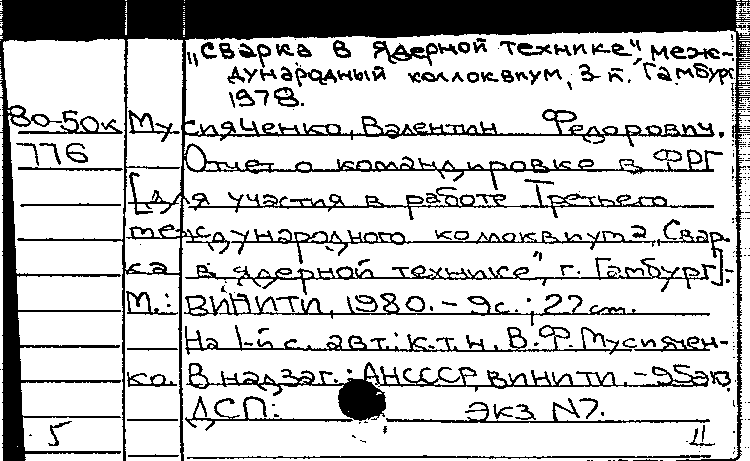 „Сварка в ядерной технике", меж-
дународный коллоквиум, 3-й. Гамбург
1978.
80-50к Мусияченко, Валентин Федорович.
776 Отчет о командировке в ФРГ
[для участия в работе Третьего
международного коллоквиума „Свар-
ка в ядерной технике", г. Гамбург].-
М.: ВИНИТИ, 1980. - 9с.; 27см.
На 1-й с. авт.: к.т.н. В.Ф. Мусиячен-
ко. В надзаг.: АН СССР, ВИНИТИ. - 95экз.
ДСП: экз N7.
5 4